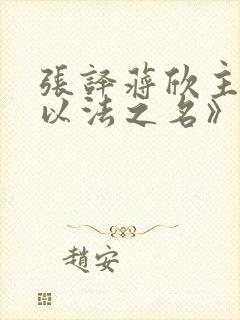 張譯蔣欣主
以法之名》
趙安